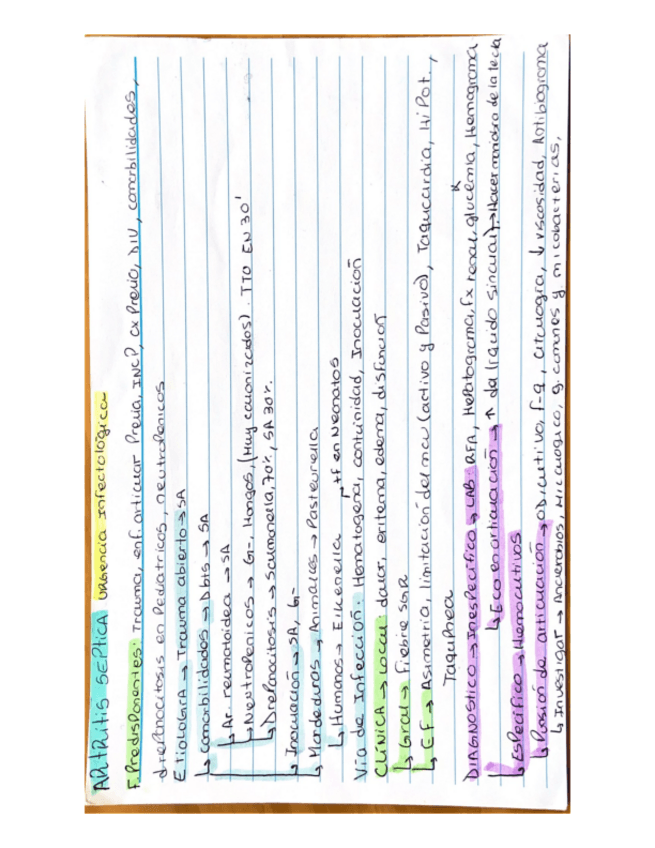 ARTRITIS SEPTICA URGENCIA INFECTOLÓGICA
F. Predisponentes: Trauma, enf. articular Previa, INCP, cx Previo, DIU, comorbilidades,
drepanocitosis en Pediatricos, neutropenicos
Etiología → Trauma abierto → SA
↳ comorbilidades → Dbts → SA
↳ Ar. reumatoidea → SA
↳ Neutropenicos → G-, Hongos, (Muy canonizados). TTO EN 30'
↳ Drepanocitosis → Salmonella, 70%, SA 30%.
↳ Inoculación → SA, G-
↳ Mordeduras → Animales → Pasteurella
↳ Humanos → Eikenella ++F en Neonatos
Vía de Infección: Hematogena, continuidad, Inoculación
CLÍNICA → LOCAL: dolor, eritema, edema, disfunción
↳ Gral → Fiebre
↳ EF → Asimetria, limitación del mov (activo y Pasivo), Taquicardia, Hipot.,
Taquipnea
DIAGNOSTICO → Inespecífico → LAB: RFA, Hepatograma, fx renal, glucemia, Hemograma
↳ Eco en articulación → ↑ da liquido sinovial) → Hacer
↳ Específico → Hemocultivos
↳ Punsión de articulación → F-Q, citología, ↓ viscosidad, Antibiograma
↳ Investigar → Anaerobios, g. comunes y micobacterias,